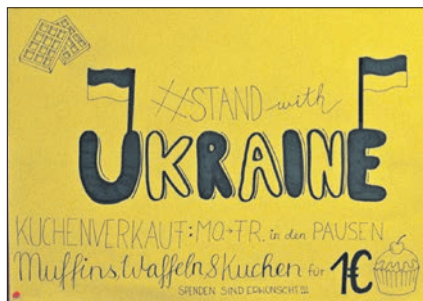 #STAND with
UKRAINE
KUCHENVERKAUF: MO.-FR. in den PAUSEN
Muffins, Waffeln & Kuchen für 1€
SPENDEN SIND ERWÜNSCHT!!!